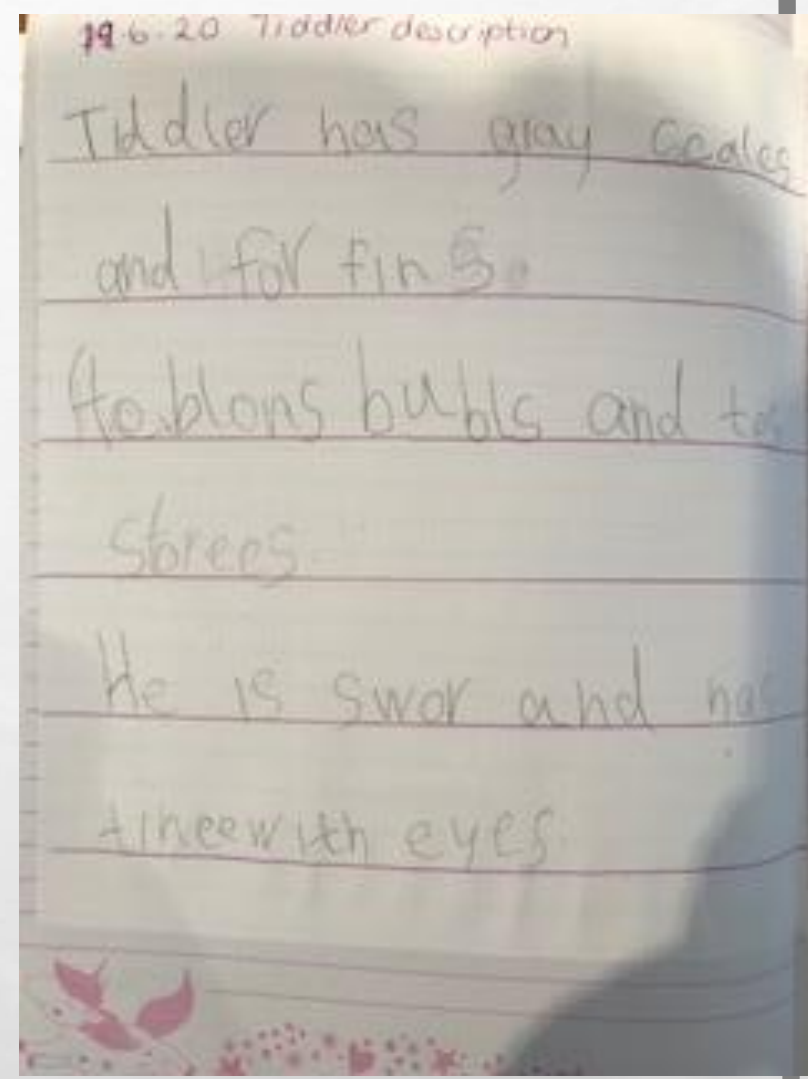 19.6.20 Tiddler description
Tiddler has gray scales
and for fins.
He blons bubls and
storees
He is swor and has
tineewith eyes